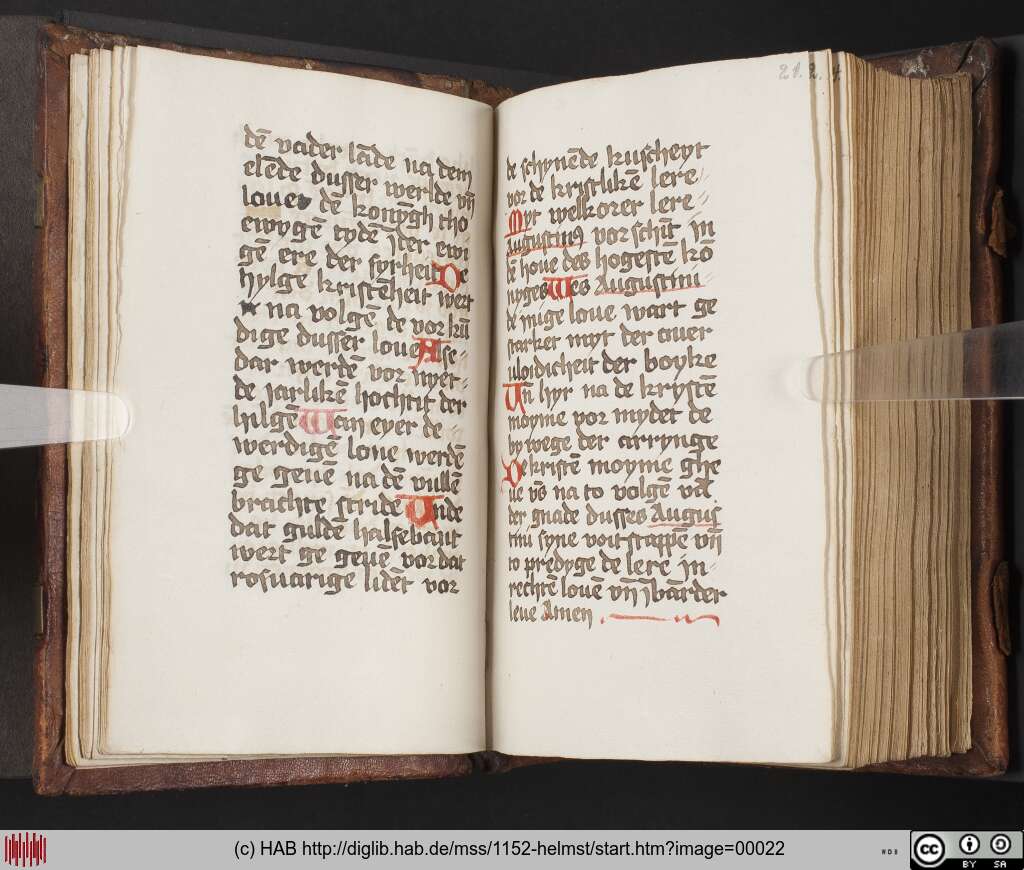 dē vader lāde na dem
elēde dusser werlde vn̄
louer dē konȳgh tho
ewygē tydē Jter ewi
gē ere der fyrheit De
hylgē kristēheit wert
na volgē de vor kū
dige dusser loue Alse-
dar werdē vor nyer-
de jarlikē hochtit der
hilgē Wan eyer de-
werdigē loue werdē
ge geuē na dē vullē
brachte stride Unde
dat guldē halsebant
wert ge geuē vor dat
rosuarige lidēt vor
21.2.
de schynēde kuscheyt
vor de kristlikē lere
Myt welkorer lere
Augustinus vor schīt in
dē houe des hogestē kō
nyges Wes Augustini
de inige loue wart ge
starket myt der auer
vlodicheit der boyke
Un hyr na de krystē
moyme vor mydet de
by wege der arrynge
De kristē moyme ghe
ue vs na to volgē vā
der gnade dusses Augus
tini syne voitstappē vn̄
to predyge de lere in
rechtē louē vn̄ jbarder
leue Amen
(c) HAB http://diglib.hab.de/mss/1152-helmst/start.htm?image=00022
WDB
cc BY SA